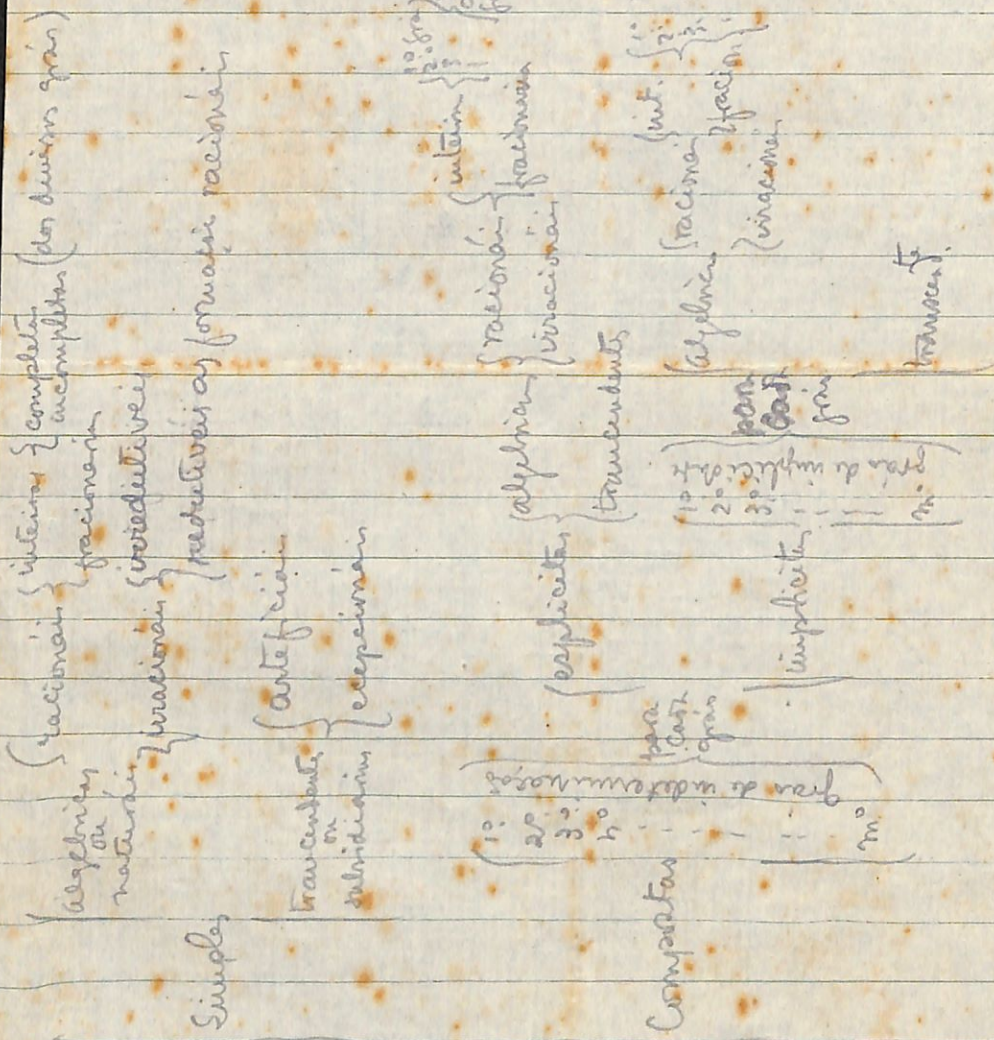 Simples
algebricas
ou
naturáis
racionáis
inteiras
completas
incompletas (dos diversos gráos)
fracionarias
irracionáis
irredutiveis
redutiveis as formas racionáis
trancendentes
ou
subsidiarias
arteficiáis
ecepcionáis
Compostas
1º
2º
3º
4º
mº
gráo de indeterminação
para
cada
gráo
esplicitas
algebricas
racionáis
inteiras
1º gráo
2º
3
fracionarias
irracionáis
trancendentes
implicitas
1º
2º
3º
mº
gráo de implicidade
para
cada
gráo
algebricas
racionais
int.
1º
2º
3º
fracion.
irracionais
transcend.